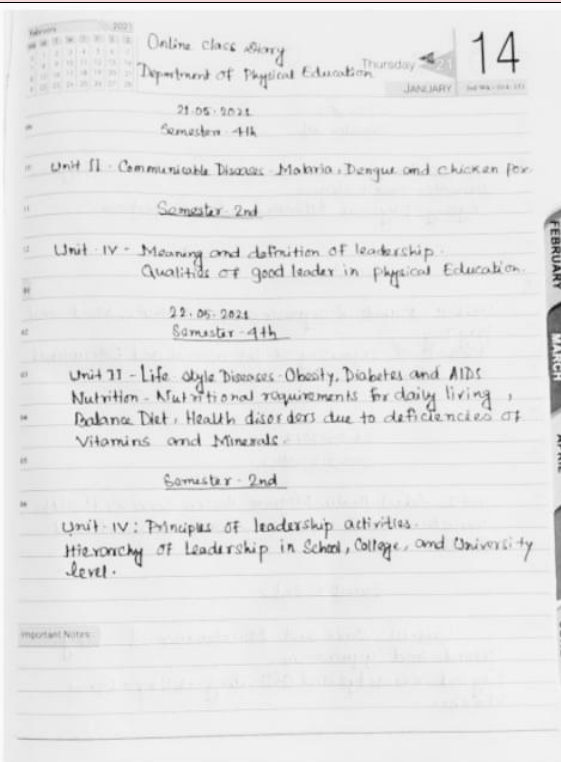 February 2021
Online class Diary
Department of Physical Education
Thursday 21
14
JANUARY
21.05.2021
Semester 4th
Unit II - Communicable Diseases - Malaria, Dengue and chicken pox.
Semester - 2nd
Unit - IV - Meaning and defnition of leadership.
Qualities of good leader in physical Education.
22.05.2021
Semester - 4th
Unit II - Life style Diseases - Obesity, Diabetes and AIDS
Nutrition - Nutritional requirements for daily living,
Balance Diet, Health disorders due to deficiencies of
Vitamins and Minerals.
Semester - 2nd
Unit - IV : Principles of leadership activities.
Hierarchy of Leadership in School, College, and University
level.
Important Notes
FEBRUARY
MARCH
APRIL